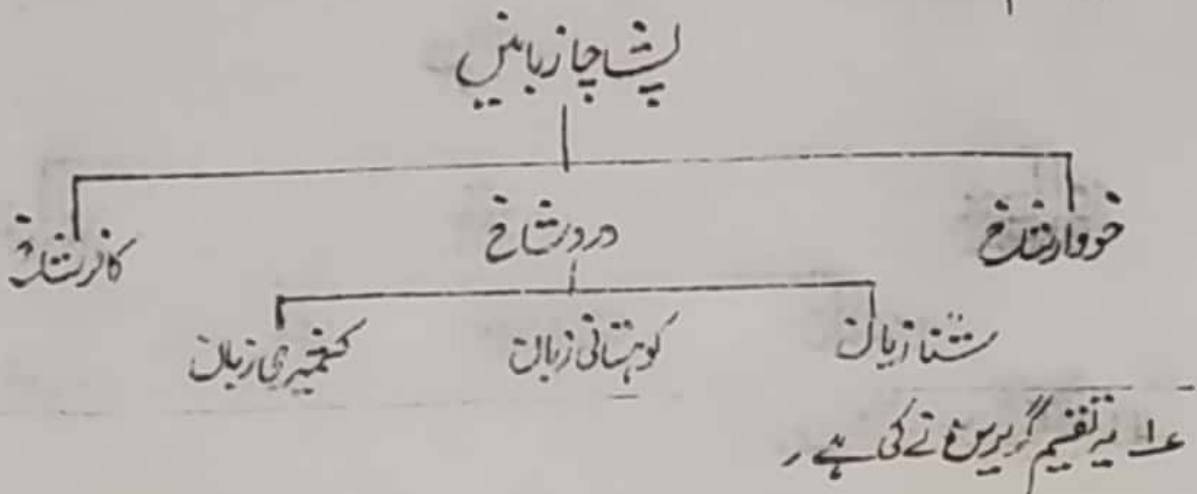 پشاچا زبانیں
خووار شاخ درد شاخ کافر شاخ
شنا زبان کوہستانی زبان کشمیری زبان
۱؎ یہ تقسیم گریرسن نے کی ہے ۔